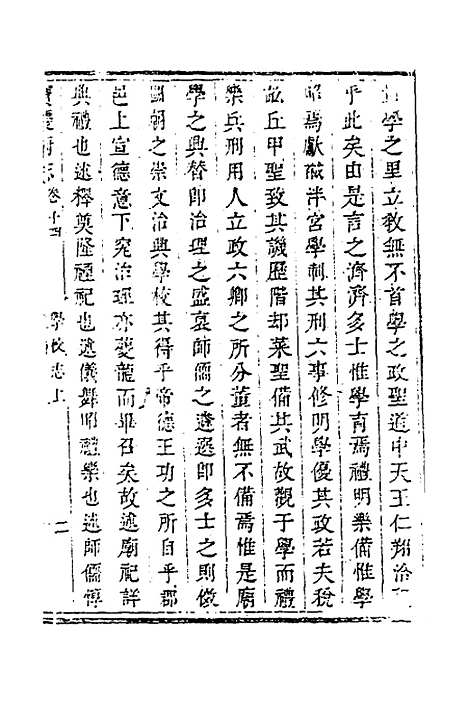 學之里立教無不首學之政聖道中天王仁翔洽
乎此矣由是言之濟濟多士惟學育焉禮明樂備惟學
昭焉獻馘泮宮學刺其刑六事修明學優其政若夫稅
丘甲聖致其譏歷階却萊聖備其武故觀于學而禮
樂兵刑用人立政六卿之所分董者無不備焉惟是廟
學之興替卽治理之盛衰師儒之遴選卽多士之則傚
國朝之崇文治興學校其得乎帝德王功之所自乎郡
邑上宣德意下究治理亦夔龍而畢召矣故述廟祀詳
典禮也述釋奠隆禋祀也述儀舞昭禮樂也述師儒惇
寶慶府志 卷十四 學校志上 二